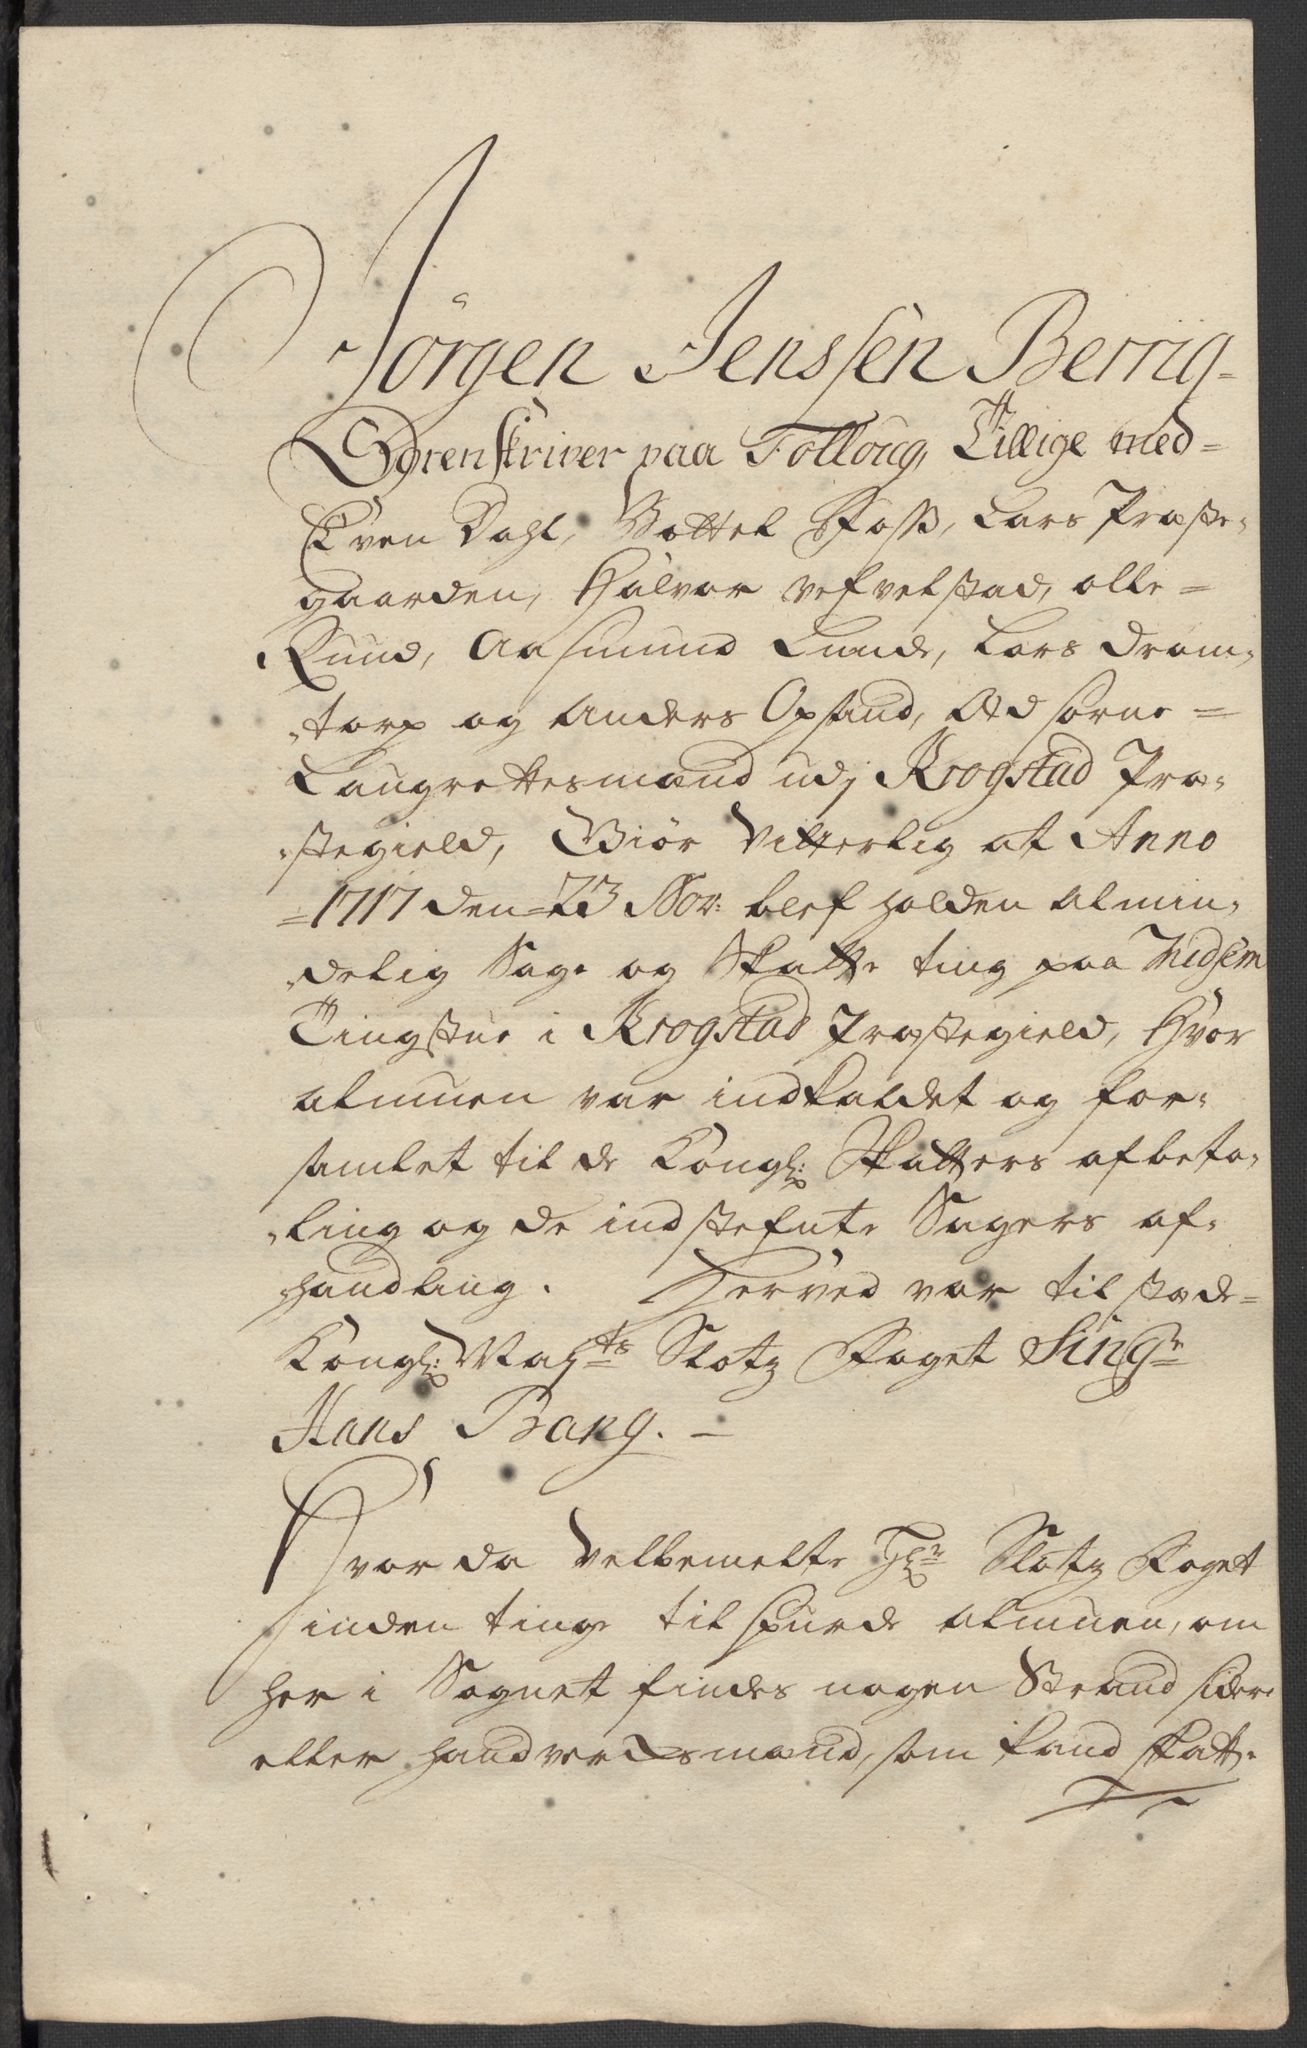 Jörgen Jenssen Berrig=
Sorenskriver paa Folloug, Tillige med=
Even Dahl, Bottel Foss, Lars Præste,
gaarden, Halvor Vefvelstad, olle=
Ruud, Aasmund Lunde, Lars Dram,
,torp og Anders Opsand, Ed sorne=
Laugrettesmænd udj Krogstad Præ,
,stegield, Giör Vitterlig at Anno
=1717 den=23 Nov: blef holden almin,
,delig Sage og Skatte ting paa Midsem
Tingstue i Krogstad Præstegield, Hvor
almuen var indkaldet og for,
samlet til de Kongl: Skatters afbeta,
,ling og de indstefnte Sagers af,
handling. Herved var til stæde=
Kongl: Maÿts Slotz Foget Singr
Hans Bang. —
Hvor da velbemelte Hr Slotz Foget
inden tinge tilspurde almuen, om
her i Sognet findes nogen Strand sidere
eller handverchsmænd, som kand skatte